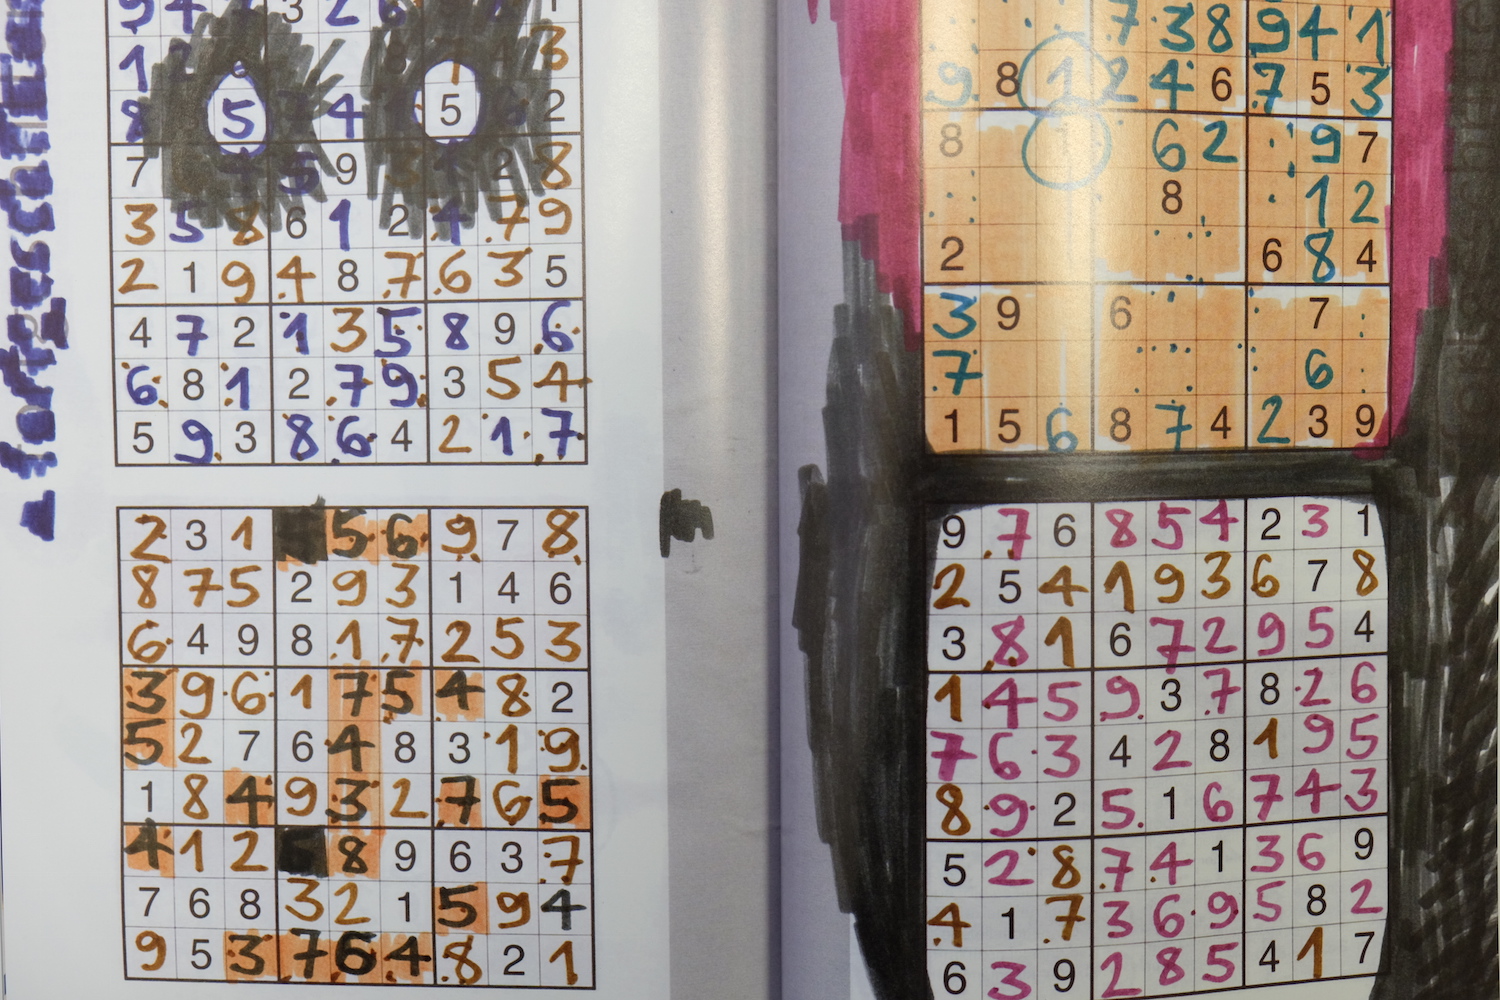 9 3 2
1 3
8 5 4 5 2
7 9 2 8
3 5 8 6 1 2 4 7 9
2 1 9 4 8 7 6 3 5
4 7 2 1 3 5 8 9 6
6 8 1 2 7 9 3 5 4
5 9 3 8 6 4 2 1 7
2 3 1 5 6 9 7 8
8 7 5 2 9 3 1 4 6
6 4 9 8 1 7 2 5 3
3 9 6 1 7 5 4 8 2
5 2 7 6 4 8 3 1 9
1 8 4 9 3 2 7 6 5
4 1 2 8 9 6 3 7
7 6 8 3 2 1 5 9 4
9 5 3 7 6 4 8 2 1
7 3 8 9 4 1
9 8 1 2 4 6 7 5 3
8 1 6 2 9 7
8 1 2
2 6 8 4
3 9 6 7
7 6
1 5 6 8 7 4 2 3 9
9 7 6 8 5 4 2 3 1
2 5 4 1 9 3 6 7 8
3 8 1 6 7 2 9 5 4
1 4 5 9 3 7 8 2 6
7 6 3 4 2 8 1 9 5
8 9 2 5 1 6 7 4 3
5 2 8 7 4 1 3 6 9
4 1 7 3 6 9 5 8 2
6 3 9 2 8 5 4 1 7